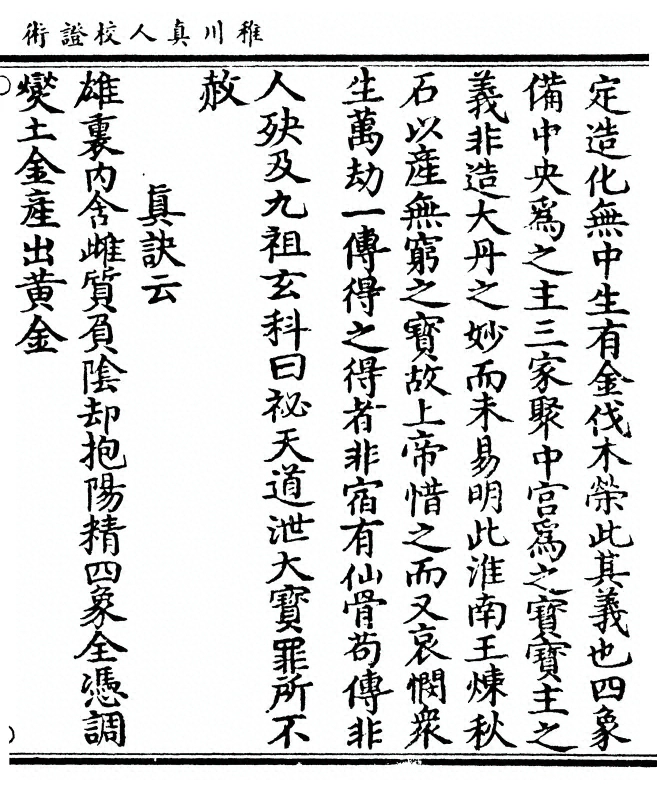 稚川真人校證術
定造化無中生有金伐木榮此其義也四象
備中央爲之主三家聚中宮爲之寶寶主之
義非造大丹之妙而未易明此淮南王煉秋
石以產無窮之寶故上帝惜之而又哀憫衆
生萬劫一傳得之得者非宿有仙骨苟傳非
人殃及九祖玄科曰祕天道泄大寶罪所不
赦
真訣云
雄裏内含雌質負陰却抱陽精四象全憑調
燮土金産出黄金